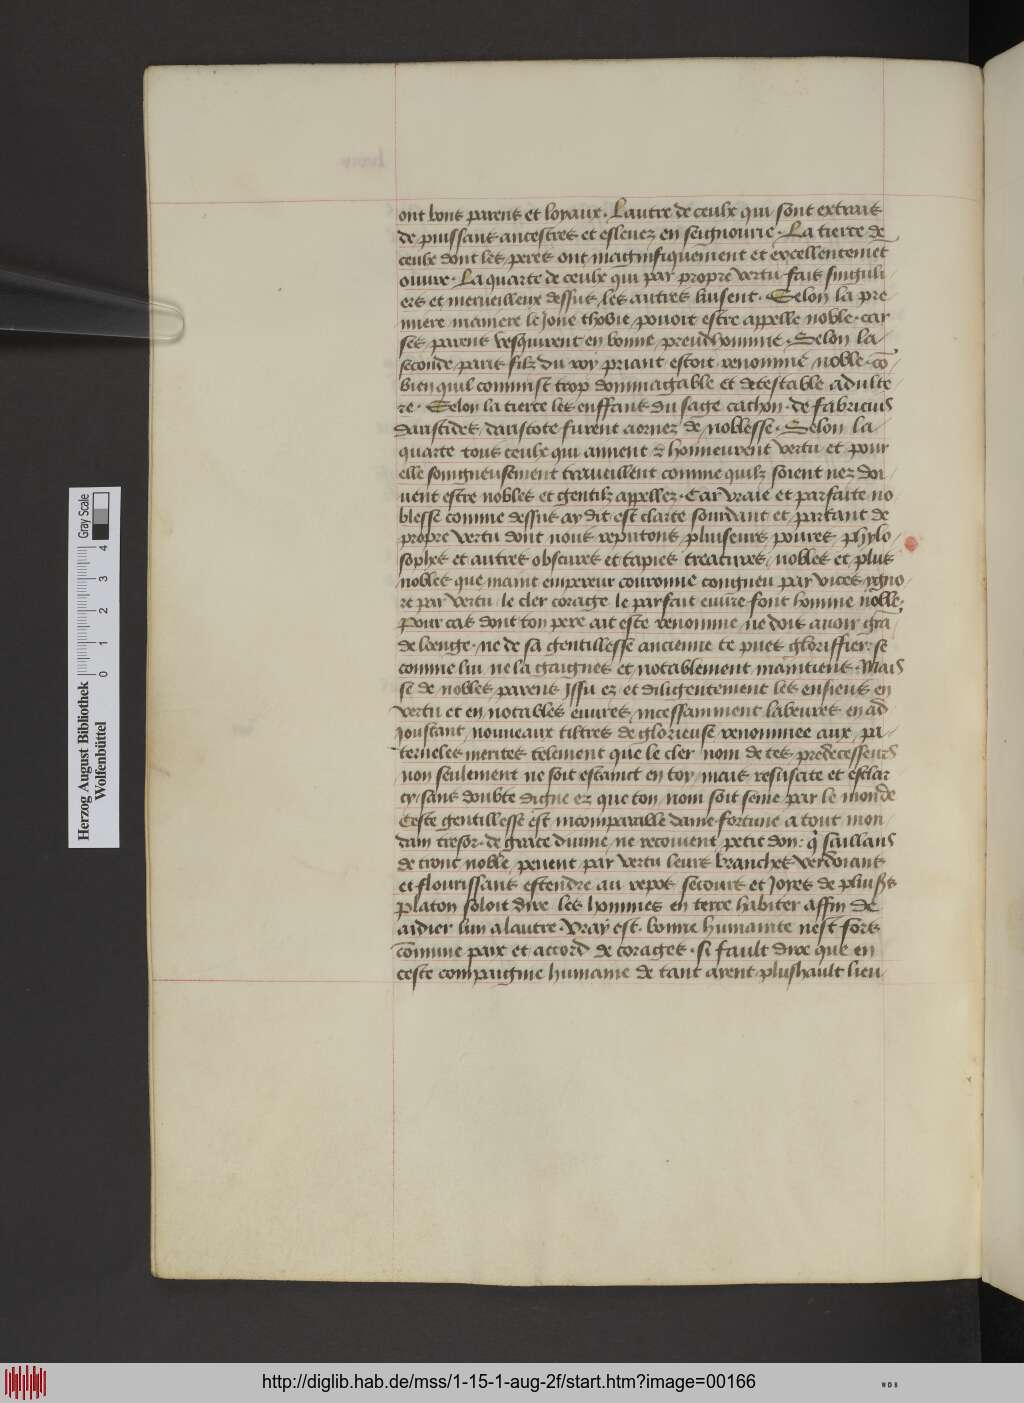 ont bons parens et loyaux. Lautre de ceulx qui sont extrais
de puissans ancestres et esleuez en seignourie. La tierce de
ceulx dont les peres ont magnifiquement et excellentemēt
ouure. La quarte de ceulx qui par propre vertu fais singuli
ers et merueilleux dessus les autres luisent. Selon la pre
miere maniere le Jone thobie pouoit estre appelle noble. car
ses parens vesquirent en bonne preudhommie. Selon la
seconde paris filz du roy priant estoit renomme noble. cō
bien quil commist trop dommagable et detestable adulte
re. Selon la tierce les enffans du sage cathon. de fabricius
daristides. daristote furent aornez de noblesse. Selon la
quarte tous ceulx qui aiment & honneurent vertu et pour
elle soingneusement traueillent comme quilz soient nez doi
uent estre nobles et gentilz appellez. Car vraie et parfaite no
blesse comme dessus ay dit est clarte sourdant et partant de
propre vertu dont nous reputons pluiseurs poures phylo
sophes et autres obscures et tapies creatures, nobles et plus
nobles que maint empereur couronne congneu par vices ygno
re par vertu. le cler corage le parfait euure font homme noble.
Pour cas dont ton pere ait este renomme, ne dois auoir grā
de loenge. ne de sa gentillesse ancienne te pues gloriffier. se
comme lui ne la gaignes et notablement maintiens. Mais
se de nobles parens Jssu ez et diligentement les ensieus en
vertu et en notables euures, incessamment labeures en ad
Joustant nouueaux tiltres de glorieuse renommee aux pa
terneles merites telement que le cler nom de tes predecesseurs
non seulement ne soit estainct en toy, mais resuscite et esclar
cy. sans doubte digne ez que ton nom soit seme par le monde
Ceste gentillesse est incomparable dame fortune a tout mon
dain tresor. de grace diuine ne recoiuent petit don: q̄ saillans
de tronc noble peuent par vertu leurs branches verdoians
et flourissans estendre au repos secours et Joyes de pluiss
Platon soloit dire les hommes en terre habiter affin de
aidier lun a lautre. Vray est. bonne humainte nest fors
cōmune paix et accord de corages. si fault dire que en
ceste compaignie humaine de tant aient plushault lieu
Herzog August Bibliothek
Wolfenbüttel
0 1 2 3 4
Gray Scale
http://diglib.hab.de/mss/1-15-1-aug-2f/start.htm?image=00166
WDB